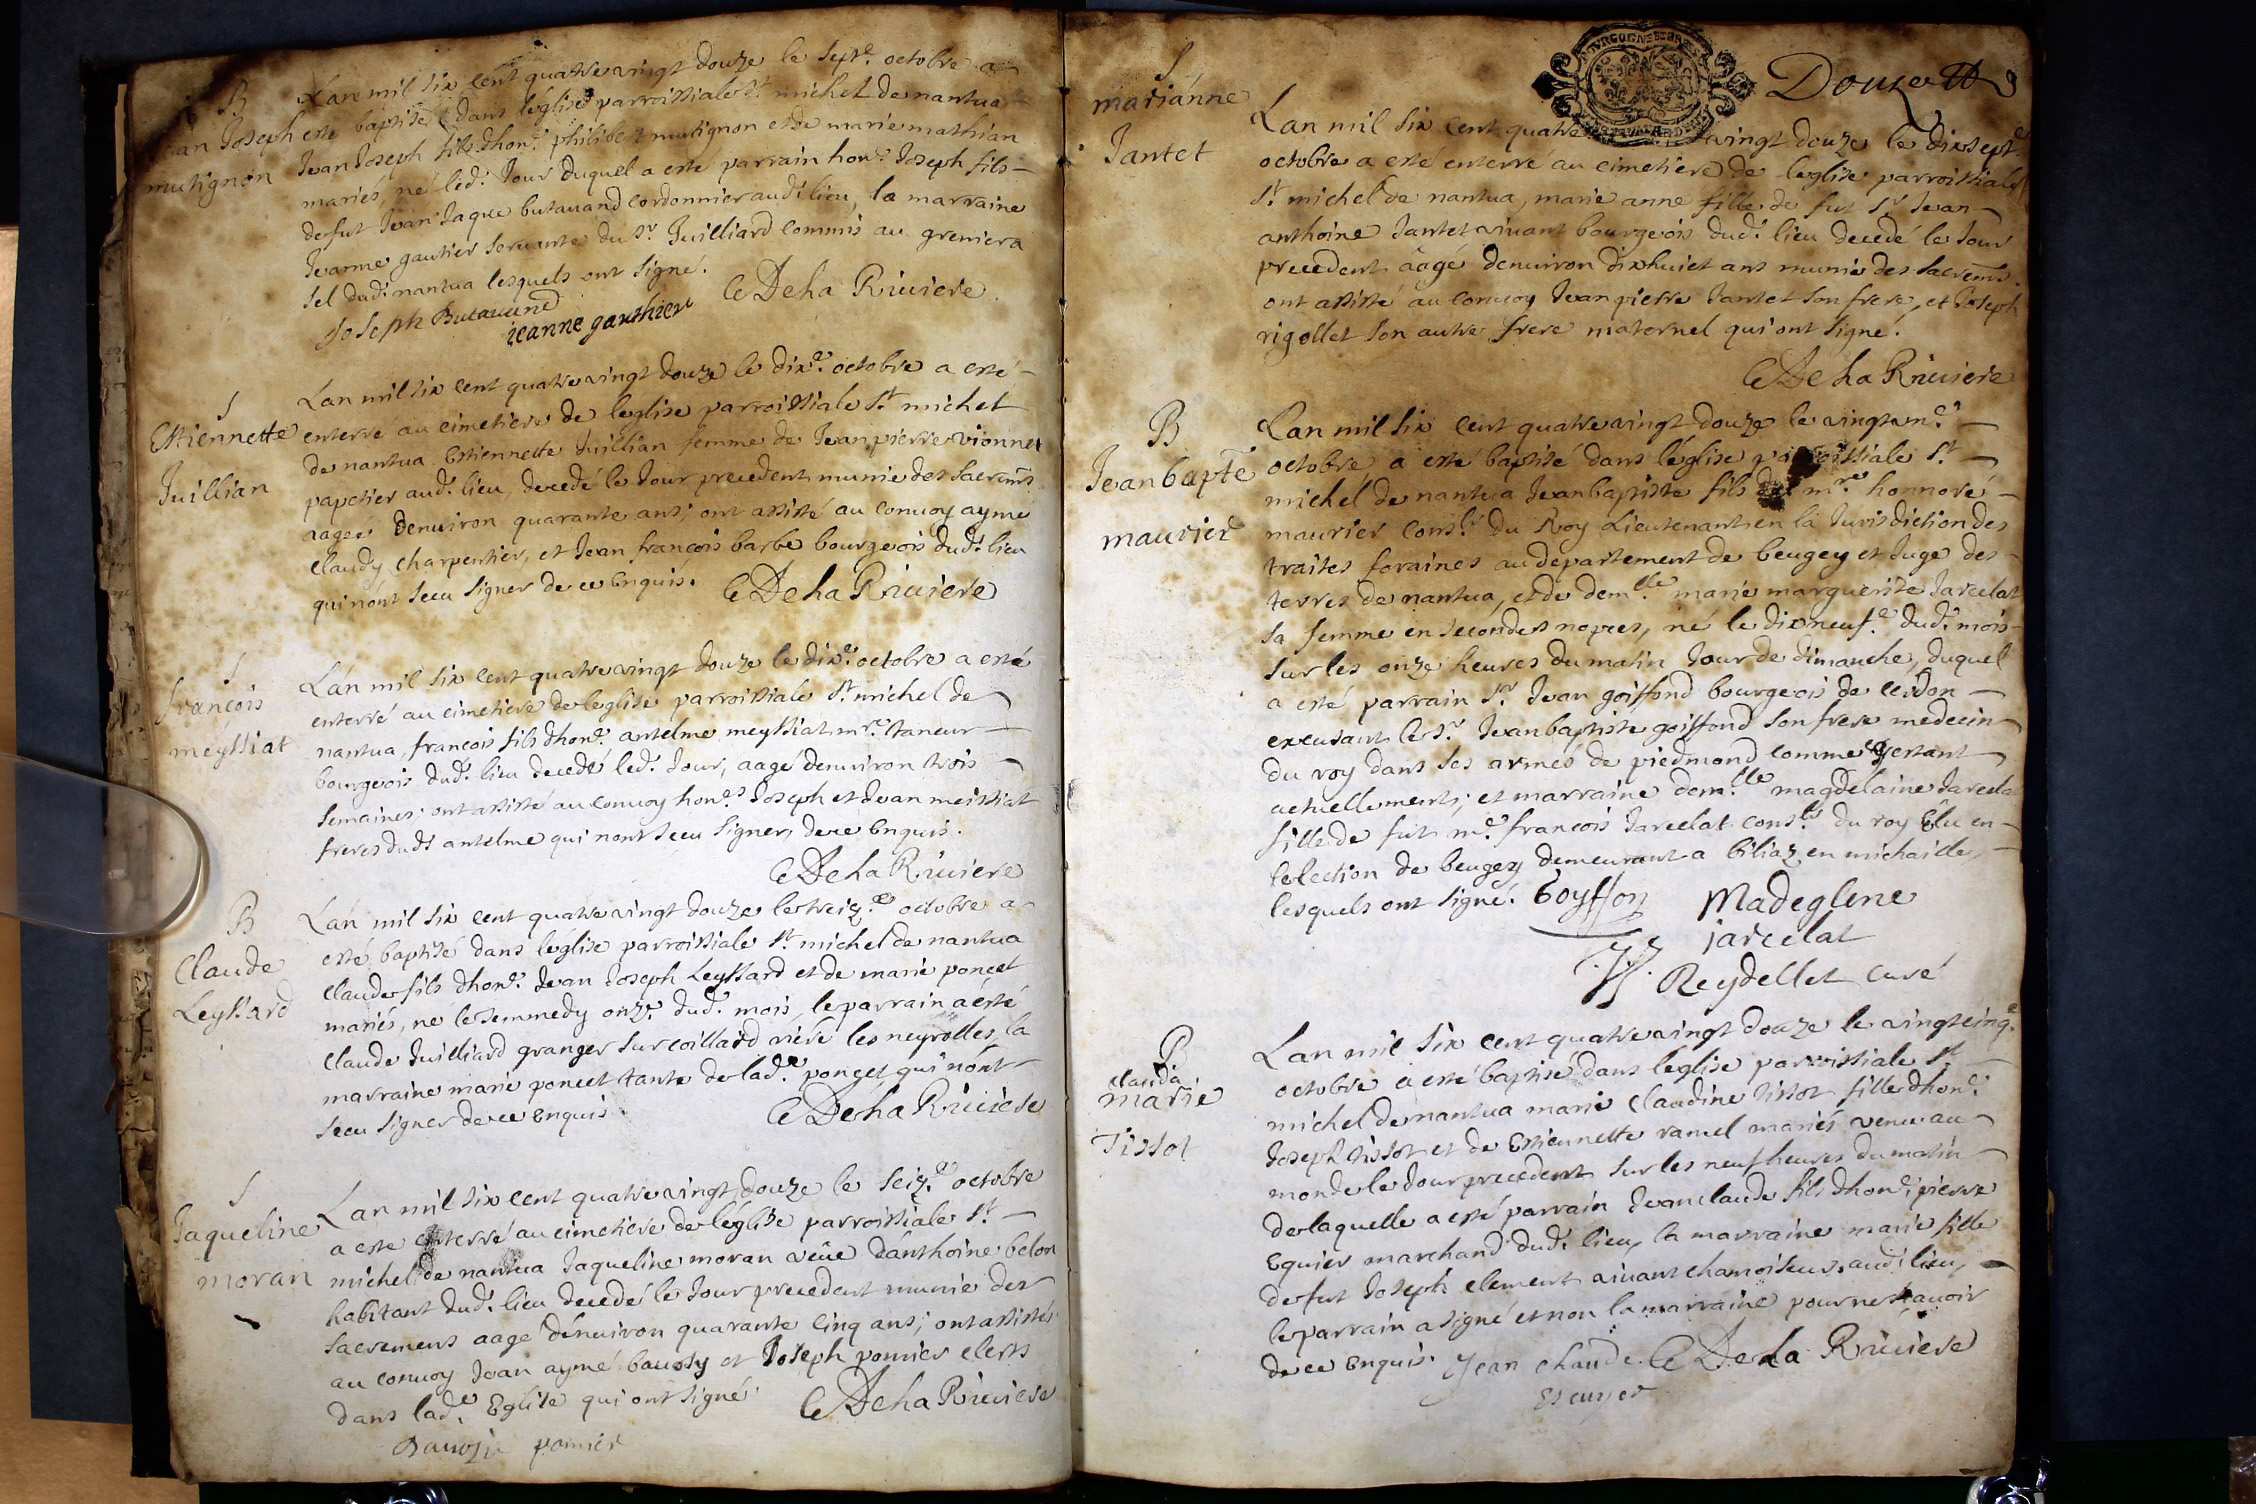 B
Jean Joseph
mutignon
Lan mil six cent quatre vingt douze le sept.e octobre a
esté baptisé dans leglise parroissiale st michel de nantua
Jean Joseph fils dhon.e philibert mutignon et de marie mathian
mariés, né led.t Jour duquel a esté parrain hon.e Joseph fils
de fut Jean Jaque butavand cordonnier aud.t lieu, la marraine
Jeanne gautier servante du sr Juilliard commis au grenier a
sel dud.t nantua lesquels ont signé.
Joseph Butavand
jeanne gauthier
De la Riviere
S
Estiennette
Juillian
Lan mil six cent quatre vingt douze le dix.e octobre a esté
enterré au cimetiere de leglise parroissiale st michel
de nantua Estiennette Juillian femme de Jean pierre vionnet
papetier aud.t lieu, decedé le Jour precedent munie des sacrem.ts
aagee denviron quarante ans; ont assisté au convoy aymé
claudy charpentier, et Jean francois barbe bourgeois dud.t lieu
qui n'ont sceu signer de ce Enquis.
De la Riviere
S
francois
meyssiat
Lan mil six cent quatre vingt douze le dix.e octobre a esté
enterré au cimetiere de leglise parroissiale st michel de
nantua, francois fils dhon.e antelme meyssiat m.re taneur
bourgeois dud.t lieu decedé led.t Jour, aagé denviron trois
semaines; ont assisté au convoy hon.es Joseph et Jean meissiat
freres dud.t antelme qui nont sceu signer, de ce Enquis.
De la Riviere
B
Claude
Leyssard
Lan mil six cent quatre vingt douze le treiz.e octobre a
esté baptisé dans léglise parroissiale st michel de nantua
claude fils dhon.e Jean Joseph Leyssard et de marie poncet
mariés, ne le semmedy onz.e dud.t mois, le parrain a esté
claude Juilliard granger sur coillard riére les neyrolles, la
marraine marie poncet tante de lad.e poncet, qui n'ont
sceu signer de ce Enquis.
De la Riviere
S
Jaqueline
moran
Lan mil six cent quatre vingt douze le seiz.e octobre
a este enterré au cimetiere de léglise parroissiale st
michel de nantua Jaqueline moran veüe d'anthoine belon
habitant dud.t lieu decedé le Jour precedent munie des
sacremens aage dénviron quarante cinq ans; ont assistés
au convoy Jean aymé bauozy et Joseph pomier clercs
dans lad.e Eglise qui ont signé.
De la Riviere
pomier
Douze
S
marianne
Jantet
Lan mil six cent quatre vingt douze le dix sept.e
octobre a esté enterré au cimetiere de leglise parroissiale
st michel de nantua, marie anne fille de fut sr Jean
anthoine Jantet vivant bourgeois dud.t lieu decedé le Jour
precedent âagé denviron dix huict ans munie des sacrem.ts
ont assisté au convoy Jean pierre Jantet son frere, et Joseph
rigollet son autre frere maternel qui ont signé.
De la Riviere
B
Jean bapte
maurier
Lan mil six cent quatre vingt douze le vingtem.e
octobre a esté baptisé dans léglise parroissiale st
michel de nantua Jean baptiste fils de m.re honnoré
maurier cons.er du Roy Lieutenant en la Jurisdiction des
traites foraines au departement de beugey et Juge des
terres de nantua, et de dem.lle marie marguerite Jarcelat
sa femme en secondes nopces, né le dix neuf.e dud.t mois
sur les onze heures du matin Jour de dimanche, duquel
a esté parrain sr Jean goiffond bourgeois de cerdon
excusant le sr Jean baptiste goiffond son frere medecin
du roy dans ses armés de piedmond comme y estant
actuellement; et marraine dem.lle magdelaine Jarcelat
fille de fut m.e francois Jarcelat cons.er du roy Elu en
lelection de beugey demeurant a biliaz en michaille,
lesquels ont signé.
Goyffon
Madeglene
jarcelat
Reydellet curé
B
clauda
marie
Tissot
Lan mil six cent quatre vingt douze le vingt cinq.e
octobre a esté baptisé dans leglise parroissiale st
michel de nantua marie claudine tissot fille dhon.e
Joseph tissot et de Estiennette ramel mariés venue au
monde le Jour precedent sur les neuf heures du matin
de laquelle a esté parrain Jean claude fils dhon.e pierre
Equier marchand dud.t lieu, la marraine marie fille
de fut Joseph clement vivant chamoiseur aud.t lieu,
le parrain a signé et non la marraine pour ne sçavoir
de ce Enquis.
Jean Claude
Escuyer
De la Riviere